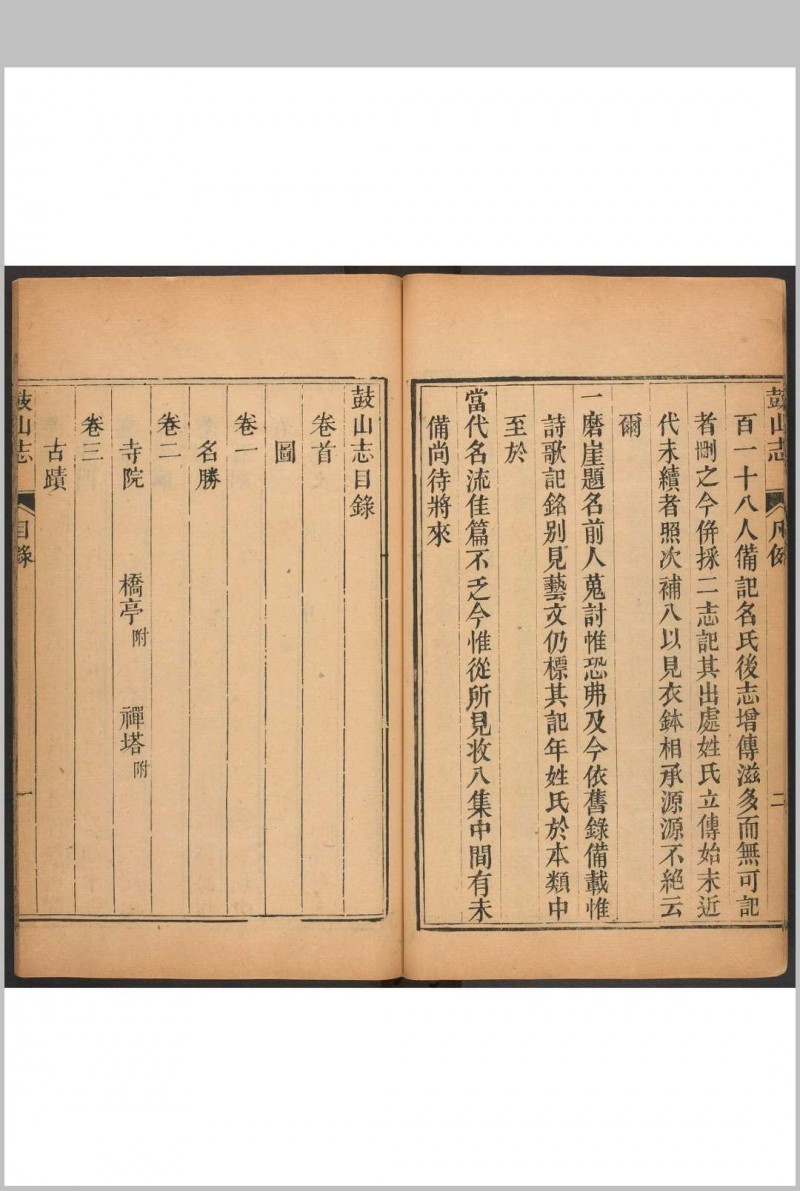 鼓山志 凡例 二
百一十八人備記名氏後志增傳滋多而無可記
者刪之今併採二志記其出處姓氏立傳始末近
代未續者照次補入以見衣鉢相承源源不絕云
爾
一磨崖題名前人蒐討惟恐弗及今依舊錄備載惟
詩歌記銘别見藝文仍標其記年姓氏於本類中
至於
當代名流佳篇不乏今惟從所見收入集中間有未
備尚待將來
鼓山志目錄
卷首
圖
卷一
名勝
卷二
寺院 橋亭附 禪塔附
卷三
古蹟
鼓山志 目錄 一